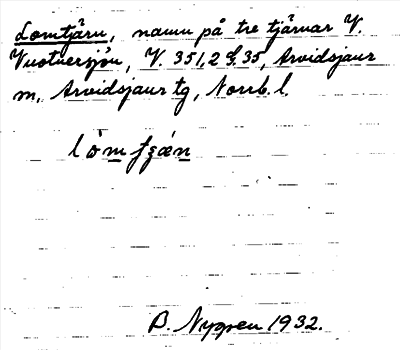 Lomtjärn, namn på tre tjärnar V.
Vuotnersjön, V. 351,2 d. 35, Arvidsjaur
m, Arvidsjaur tg, Norrb. l.
B. Nygren 1932.